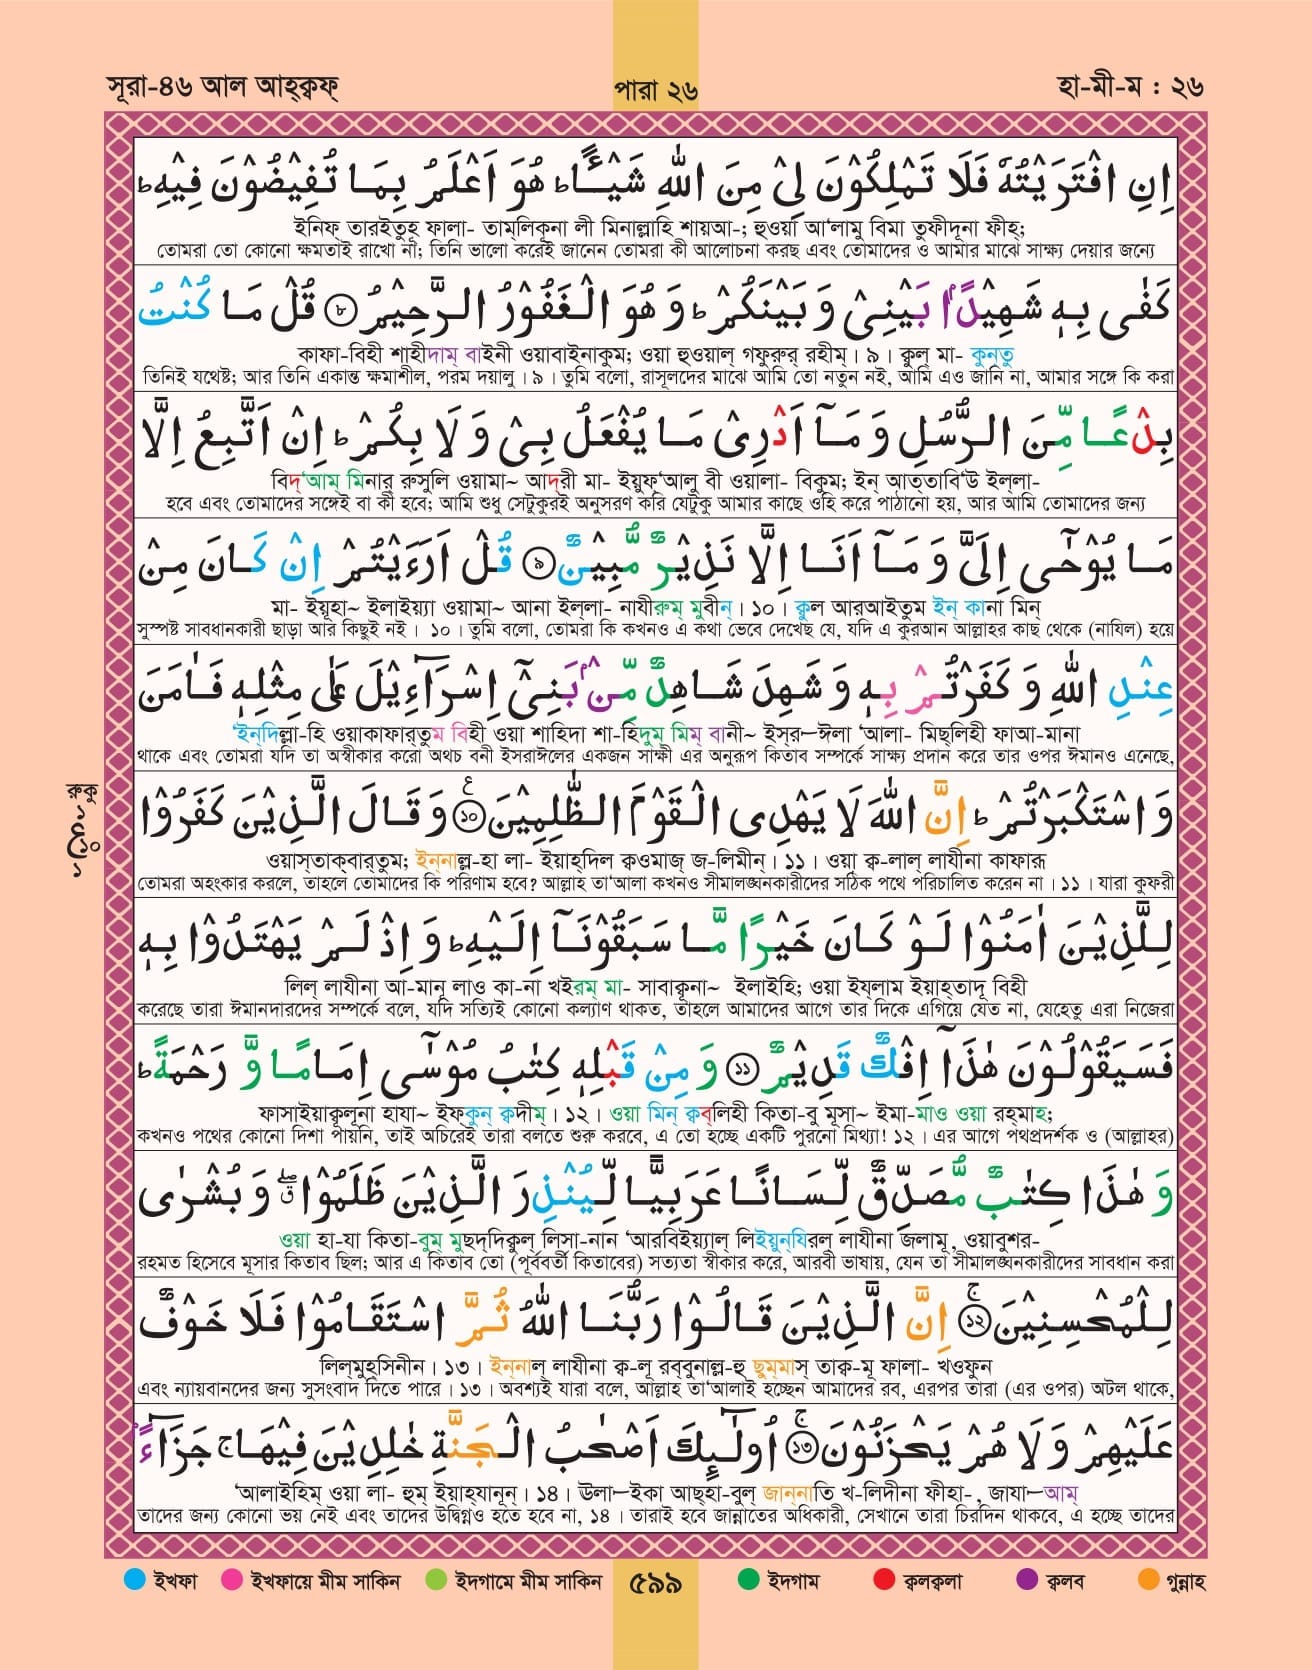 সূরা-৪৬ আল আহ্ক্বফ্
পারা ২৬
হা-মী-ম : ২৬
اِنِ افْتَرَيْتُهٗ فَلَا تَمْلِكُوْنَ لِيْ مِنَ اللّٰهِ شَيْـًٔا ؕ هُوَ اَعْلَمُ بِمَا تُفِيْضُوْنَ فِيْهِ ؕ
ইনিফ্ তারইতুহূ ফালা- তাম্‌লিকূনা লী মিনাল্লাহি শায়আ-; হুওয়া আ'লামু বিমা তুফীদূনা ফীহ্;
তোমরা তো কোনো ক্ষমতাই রাখো না; তিনি ভালো করেই জানেন তোমরা কী আলোচনা করছ এবং তোমাদের ও আমার মাঝে সাক্ষ্য দেয়ার জন্যে
كَفٰى بِهٖ شَهِيْدًۢا بَيْنِيْ وَ بَيْنَكُمْ ؕ وَ هُوَ الْغَفُوْرُ الرَّحِيْمُ ۝۸ قُلْ مَا كُنْتُ
কাফা-বিহী শাহীদাম্ বাইনী ওয়াবাইনাকুম; ওয়া হুওয়াল্ গফুরুর্ রহীম্। ৯। ক্বুল্ মা- কুনতু
তিনিই যথেষ্ট; আর তিনি একান্ত ক্ষমাশীল, পরম দয়ালু। ৯। তুমি বলো, রাসূলদের মাঝে আমি তো নতুন নই, আমি এও জানি না, আমার সঙ্গে কি করা
بِدْعًا مِّنَ الرُّسُلِ وَ مَاۤ اَدْرِيْ مَا يُفْعَلُ بِيْ وَ لَا بِكُمْ ؕ اِنْ اَتَّبِعُ اِلَّا
বিদ্'আম্ মিনার্ রুসুলি ওয়ামা~ আদ্‌রী মা- ইয়ুফ্'আলু বী ওয়ালা- বিকুম; ইন্ আত্তাবি'উ ইল্লা-
হবে এবং তোমাদের সঙ্গেই বা কী হবে; আমি শুধু সেটুকুরই অনুসরণ করি যেটুকু আমার কাছে ওহি করে পাঠানো হয়, আর আমি তোমাদের জন্য
مَا يُوْحٰۤى اِلَيَّ وَ مَاۤ اَنَا اِلَّا نَذِيْرٌ مُّبِيْنٌ ۝۹ قُلْ اَرَءَيْتُمْ اِنْ كَانَ مِنْ
মা- ইয়ূহা~ ইলাইয়্যা ওয়ামা~ আনা ইল্লা- নাযীরুম্ মুবীন্। ১০। ক্বুল আরআইতুম ইন্ কানা মিন্
সুস্পষ্ট সাবধানকারী ছাড়া আর কিছুই নই। ১০। তুমি বলো, তোমরা কি কখনও এ কথা ভেবে দেখেছ যে, যদি এ কুরআন আল্লাহর কাছ থেকে (নাযিল) হয়ে
عِنْدِ اللّٰهِ وَ كَفَرْتُمْ بِهٖ وَ شَهِدَ شَاهِدٌ مِّنْۢ بَنِيْۤ اِسْرَآءِيْلَ عَلٰى مِثْلِهٖ فَاٰمَنَ
'ইন্‌দিল্লা-হি ওয়াকাফার্‌তুম বিহী ওয়া শাহিদা শা-হিদুম্ মিম্ বানী~ ইস্‌র—ঈলা 'আলা- মিছ্‌লিহী ফাআ-মানা
থাকে এবং তোমরা যদি তা অস্বীকার করো অথচ বনী ইসরাঈলের একজন সাক্ষী এর অনুরূপ কিতাব সম্পর্কে সাক্ষ্য প্রদান করে তার ওপর ঈমানও এনেছে,
রুকু
وَ اسْتَكْبَرْتُمْ ؕ اِنَّ اللّٰهَ لَا يَهْدِي الْقَوْمَ الظّٰلِمِيْنَ ۝۱۰ وَ قَالَ الَّذِيْنَ كَفَرُوْا
ওয়াস্‌তাক্‌বার্‌তুম; ইন্নাল্ল-হা লা- ইয়াহ্‌দিল ক্বওমাজ্ জ-লিমীন্। ১১। ওয়া ক্ব-লাল্ লাযীনা কাফারূ
তোমরা অহংকার করলে, তাহলে তোমাদের কি পরিণাম হবে? আল্লাহ তা'আলা কখনও সীমালঙ্ঘনকারীদের সঠিক পথে পরিচালিত করেন না। ১১। যারা কুফরী
لِلَّذِيْنَ اٰمَنُوْا لَوْ كَانَ خَيْرًا مَّا سَبَقُوْنَاۤ اِلَيْهِ ؕ وَ اِذْ لَمْ يَهْتَدُوْا بِهٖ
লিল্ লাযীনা আ-মানূ লাও কা-না খইরম্ মা- সাবাক্বূনা~ ইলাইহি; ওয়া ইয্‌লাম ইয়াহ্‌তাদূ বিহী
করেছে তারা ঈমানদারদের সম্পর্কে বলে, যদি সত্যিই কোনো কল্যাণ থাকত, তাহলে আমাদের আগে তার দিকে এগিয়ে যেত না, যেহেতু এরা নিজেরা
فَسَيَقُوْلُوْنَ هٰذَاۤ اِفْكٌ قَدِيْمٌ ۝۱۱ وَ مِنْ قَبْلِهٖ كِتٰبُ مُوْسٰۤى اِمَامًا وَّ رَحْمَةً ؕ
ফাসাইয়াক্বূলূনা হাযা~ ইফ্‌কুন্ ক্বদীম্। ১২। ওয়া মিন্ ক্বব্‌লিহী কিতা-বু মূসা~ ইমা-মাও ওয়া রহ্‌মাহ্;
কখনও পথের কোনো দিশা পায়নি, তাই অচিরেই তারা বলতে শুরু করবে, এ তো হচ্ছে একটি পুরনো মিথ্যা! ১২। এর আগে পথপ্রদর্শক ও (আল্লাহর)
وَ هٰذَا كِتٰبٌ مُّصَدِّقٌ لِّسَانًا عَرَبِيًّا لِّيُنْذِرَ الَّذِيْنَ ظَلَمُوْا ۖۗ وَ بُشْرٰى
ওয়া হা-যা কিতা-বুম্ মুছদ্‌দিক্বুল্ লিসা-নান 'আরবিইয়্যাল্ লিইয়ুন্‌যিরল্ লাযীনা জলামূ , ওয়াবুশর-
রহমত হিসেবে মূসার কিতাব ছিল; আর এ কিতাব তো (পূর্ববর্তী কিতাবের) সত্যতা স্বীকার করে, আরবী ভাষায়, যেন তা সীমালঙ্ঘনকারীদের সাবধান করা
لِلْمُحْسِنِيْنَ ۝۱۲ اِنَّ الَّذِيْنَ قَالُوْا رَبُّنَا اللّٰهُ ثُمَّ اسْتَقَامُوْا فَلَا خَوْفٌ
লিল্‌মুহ্‌সিনীন। ১৩। ইন্নাল্ লাযীনা ক্ব-লূ রব্বুনাল্ল-হু ছুম্মাস্ তাক্ব-মূ ফালা- খওফুন
এবং ন্যায়বানদের জন্য সুসংবাদ দিতে পারে। ১৩। অবশ্যই যারা বলে, আল্লাহ তা'আলাই হচ্ছেন আমাদের রব, এরপর তারা (এর ওপর) অটল থাকে,
عَلَيْهِمْ وَ لَا هُمْ يَحْزَنُوْنَ ۝۱۳ اُولٰٓئِكَ اَصْحٰبُ الْجَنَّةِ خٰلِدِيْنَ فِيْهَا ۚ جَزَآءًۢ
'আলাইহিম্ ওয়া লা- হুম্ ইয়াহ্‌যানূন্। ১৪। ঊলা—ইকা আছ্‌হা-বুল্ জান্নাতি খ-লিদীনা ফীহা- , জাযা—আম্
তাদের জন্য কোনো ভয় নেই এবং তাদের উদ্বিগ্নও হতে হবে না, ১৪। তারাই হবে জান্নাতের অধিকারী, সেখানে তারা চিরদিন থাকবে, এ হচ্ছে তাদের
ইখফা
ইখফায়ে মীম সাকিন
ইদগামে মীম সাকিন
৫৯৯
ইদগাম
ক্বলক্বলা
ক্বলব
গুন্নাহ